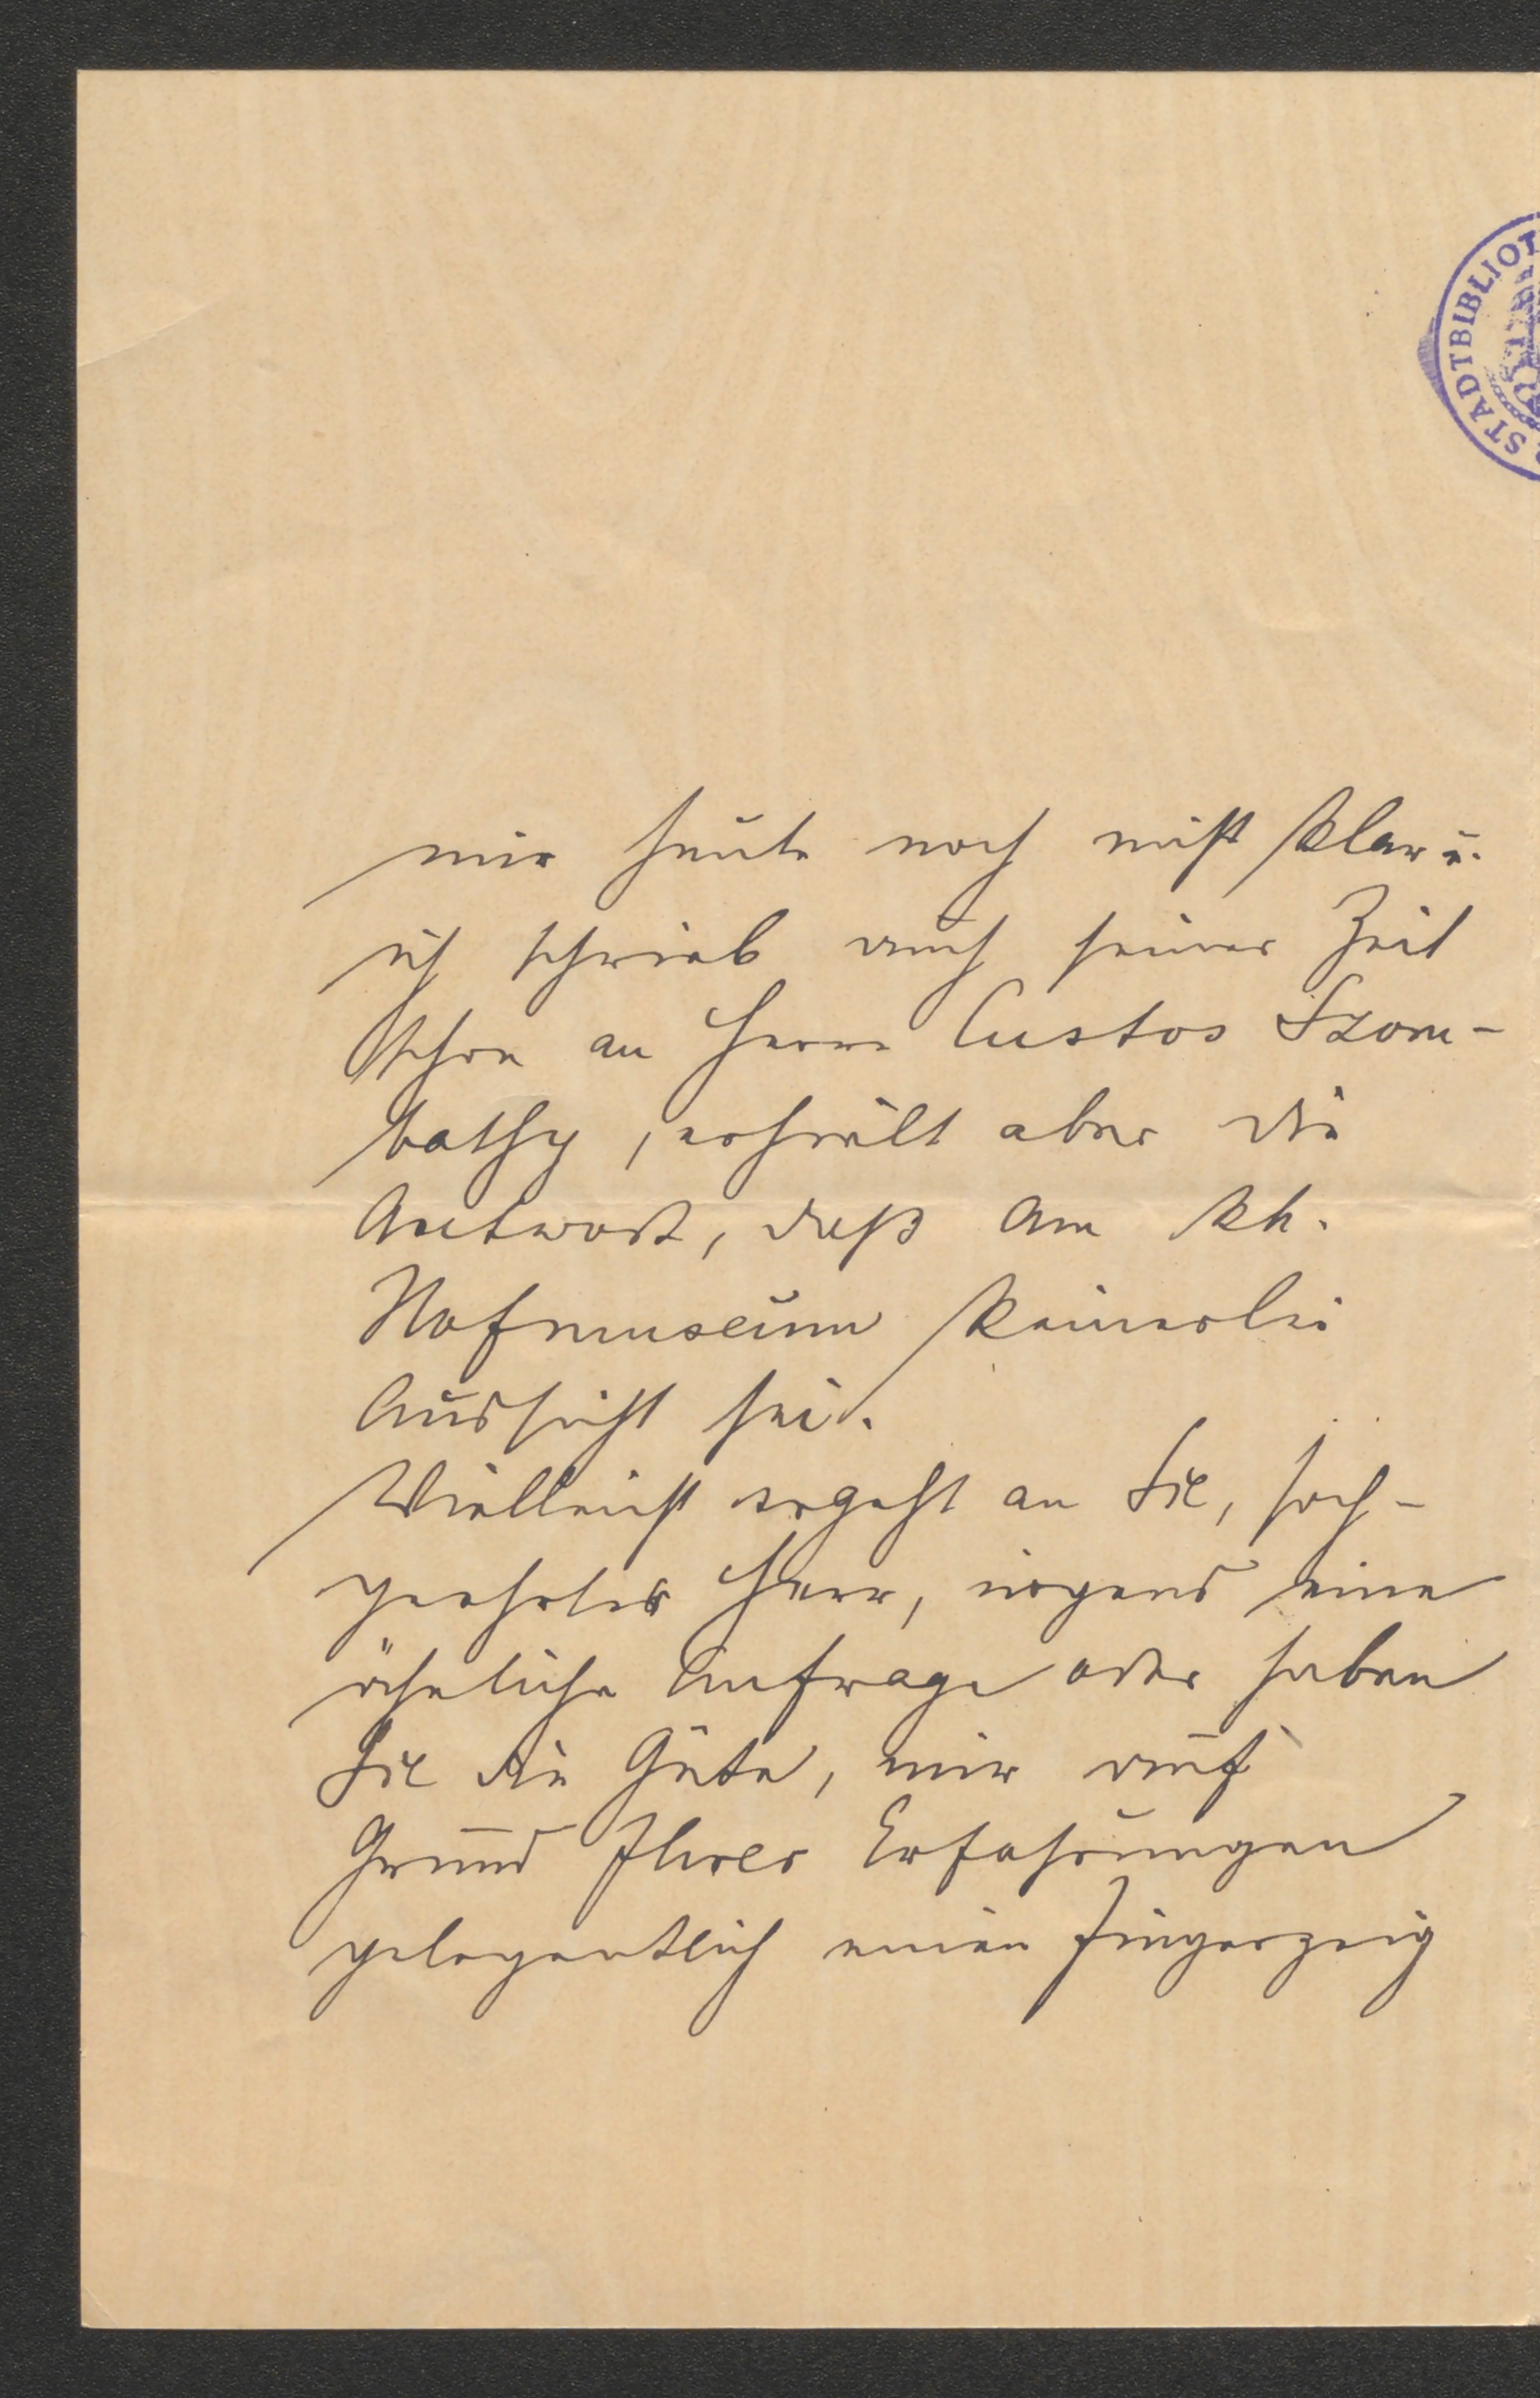 STADTBIBLIOT
mir heute noch nicht klar u.
ich schrieb auch seiner Zeit
schon an Herrn Custos Szom-
bathy, erhielt aber die
Antwort, daß am kk.
Hofmuseum keinerlei
Aussicht sei.
Vielleicht ergeht an Sie, hoch-
geehrter Herr, irgend eine
ähnliche Anfrage oder haben
Sie die Güte, mir auf
Grund Ihrer Erfahrungen
gelegentlich einen Fingerzeig